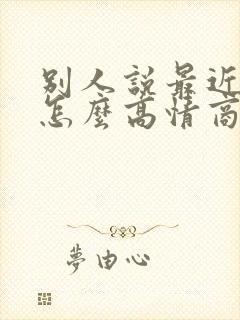 別人說最近
怎麼高情商
夢由心